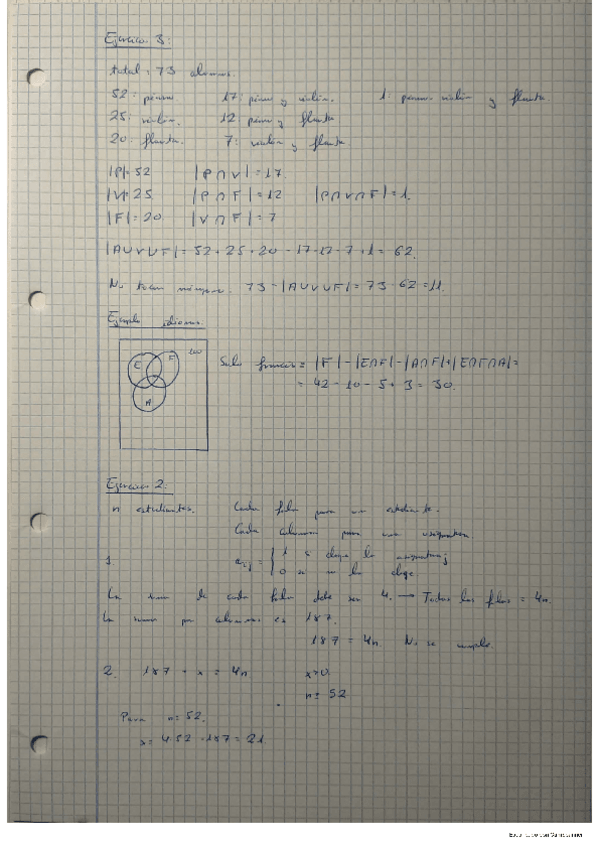 Ejercicio 3:
total: 73 alumnos.
52: piano. 17: piano y violín. 1: piano violín y flauta
25: violín. 12 piano y flauta
20: flauta. 7: violín y flauta
|P|=52 |P∩V|=17.
|V|=25 |P∩F|=12 |P∩V∩F|=1.
|F|=20 |V∩F|=7
|AUVUF|= 52+25+20-17-12-7+1= 62.
No tocan ninguno: 73-|AUVUF|=73-62=11.
Ejemplo idiomas.
E F 100
A
Solo francés= |F|-|E∩F|-|A∩F|+|E∩F∩A|=
= 42-10-5+3=30.
Ejercicio 2:
n estudiantes. Cada fila para un estudiante.
Cada columna para una asignatura
1. = { 1 si elige la asignatura j
0 si no la elige
La suma de cada fila debe ser 4. → Todas las filas = 4n.
La suma por columnas es 187.
187 = 4n No se cumple.
2. 187 + x = 4n x>0
52
Para n=52.
x= 4·52-187=21